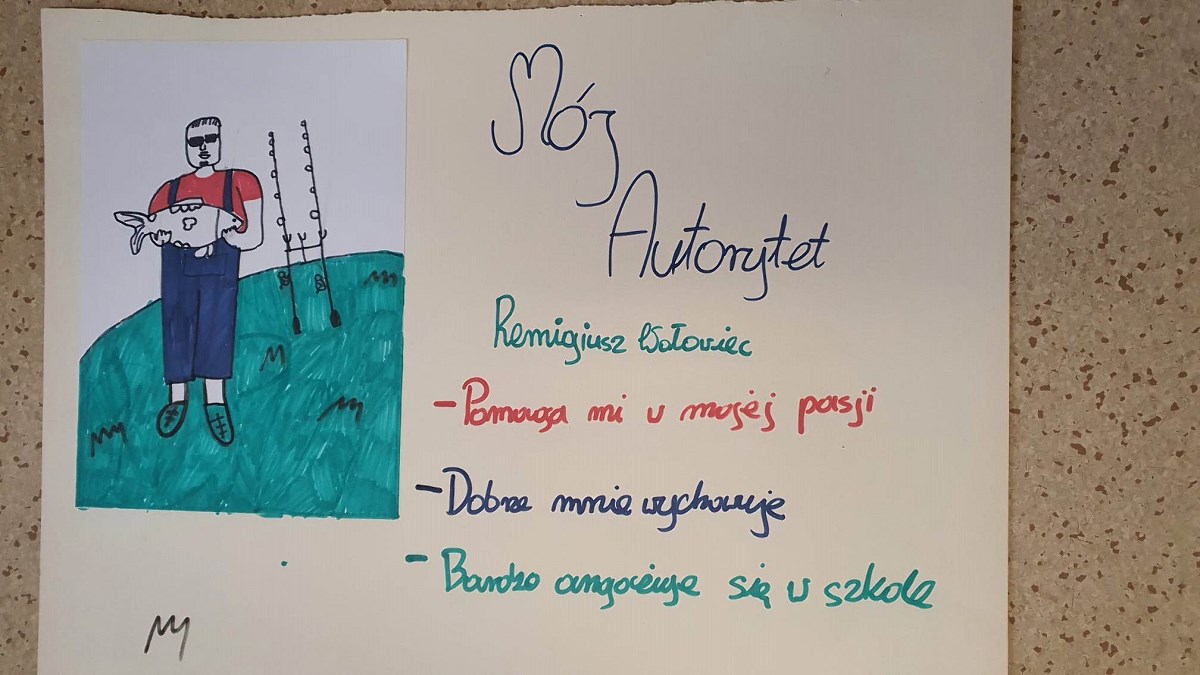 Mój
Autorytet
Remigiusz Wołowiec
- Pomaga mi w mojej pasji
- Dobrze mnie wychowuje
- Bardzo angażuje się w szkole